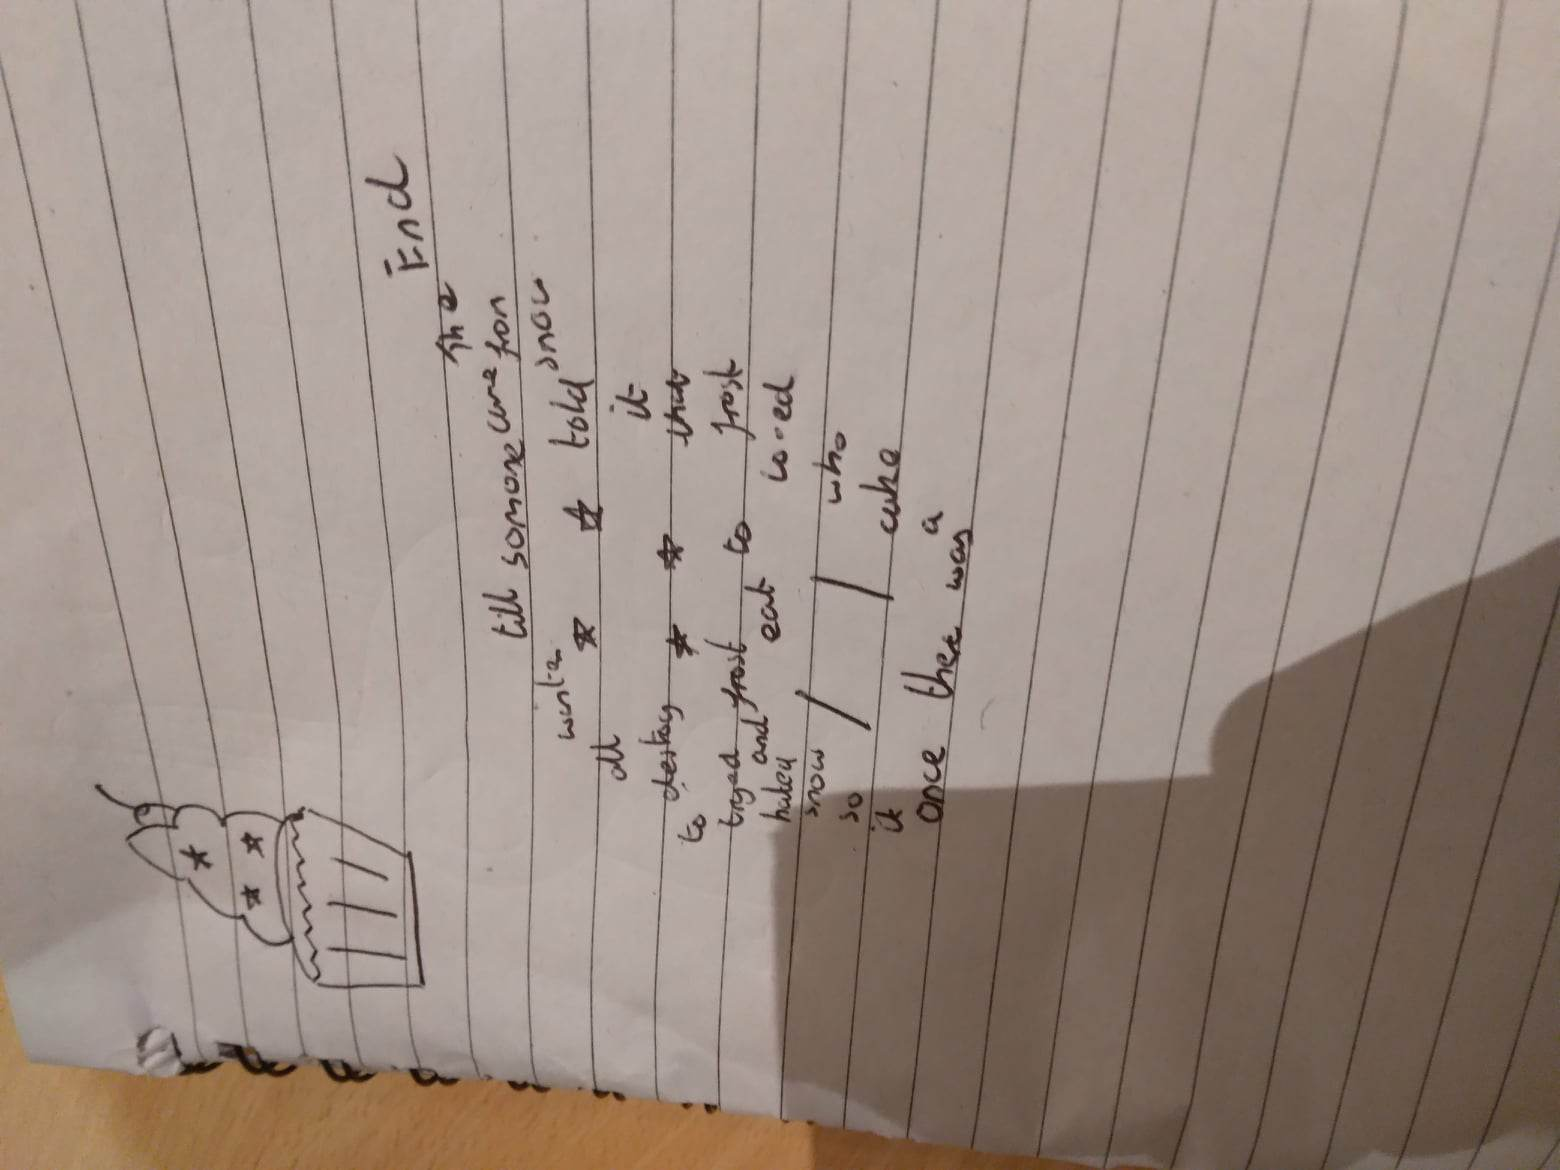 End
The
till someone came from
winter snow
all told
it
destroy that
to
tryed frost to frost
hated and eat loved
snow who
so cake
it
once there was a